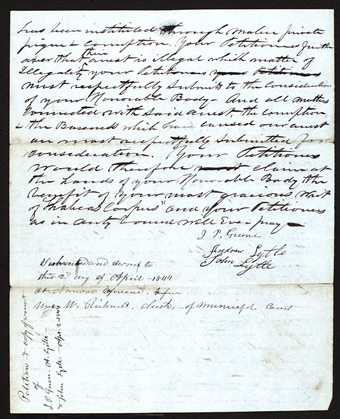 has been instituted through malice private
pique & corruption. Your Petitioners further
aver that their arrest is illegal which matter of
Illegality your Petitioners
most respectfully submit to the consideration
of your Honorable Body - And all matters
connected with said arrest the corruption
& the Baseness which have caused our arrest
are most respectfully submitted for
consideration. Your Petitioners
would therefore claim at
the hands of your Honorable Body the
benefit of your most gracious Writ
of "Habeas Corpus" and your Petitioners
as in duty bound will Ever pray -
J. P. Greene
Andrew Lytle
John Lytle
Subscribed and sworn to
this 2d day of April - 1844
At Nauvoo before
W. Richards, Clerk of Municipal Court
Petition & copy of warrant
of
J. P. Green A. Lytle
& John Lytle